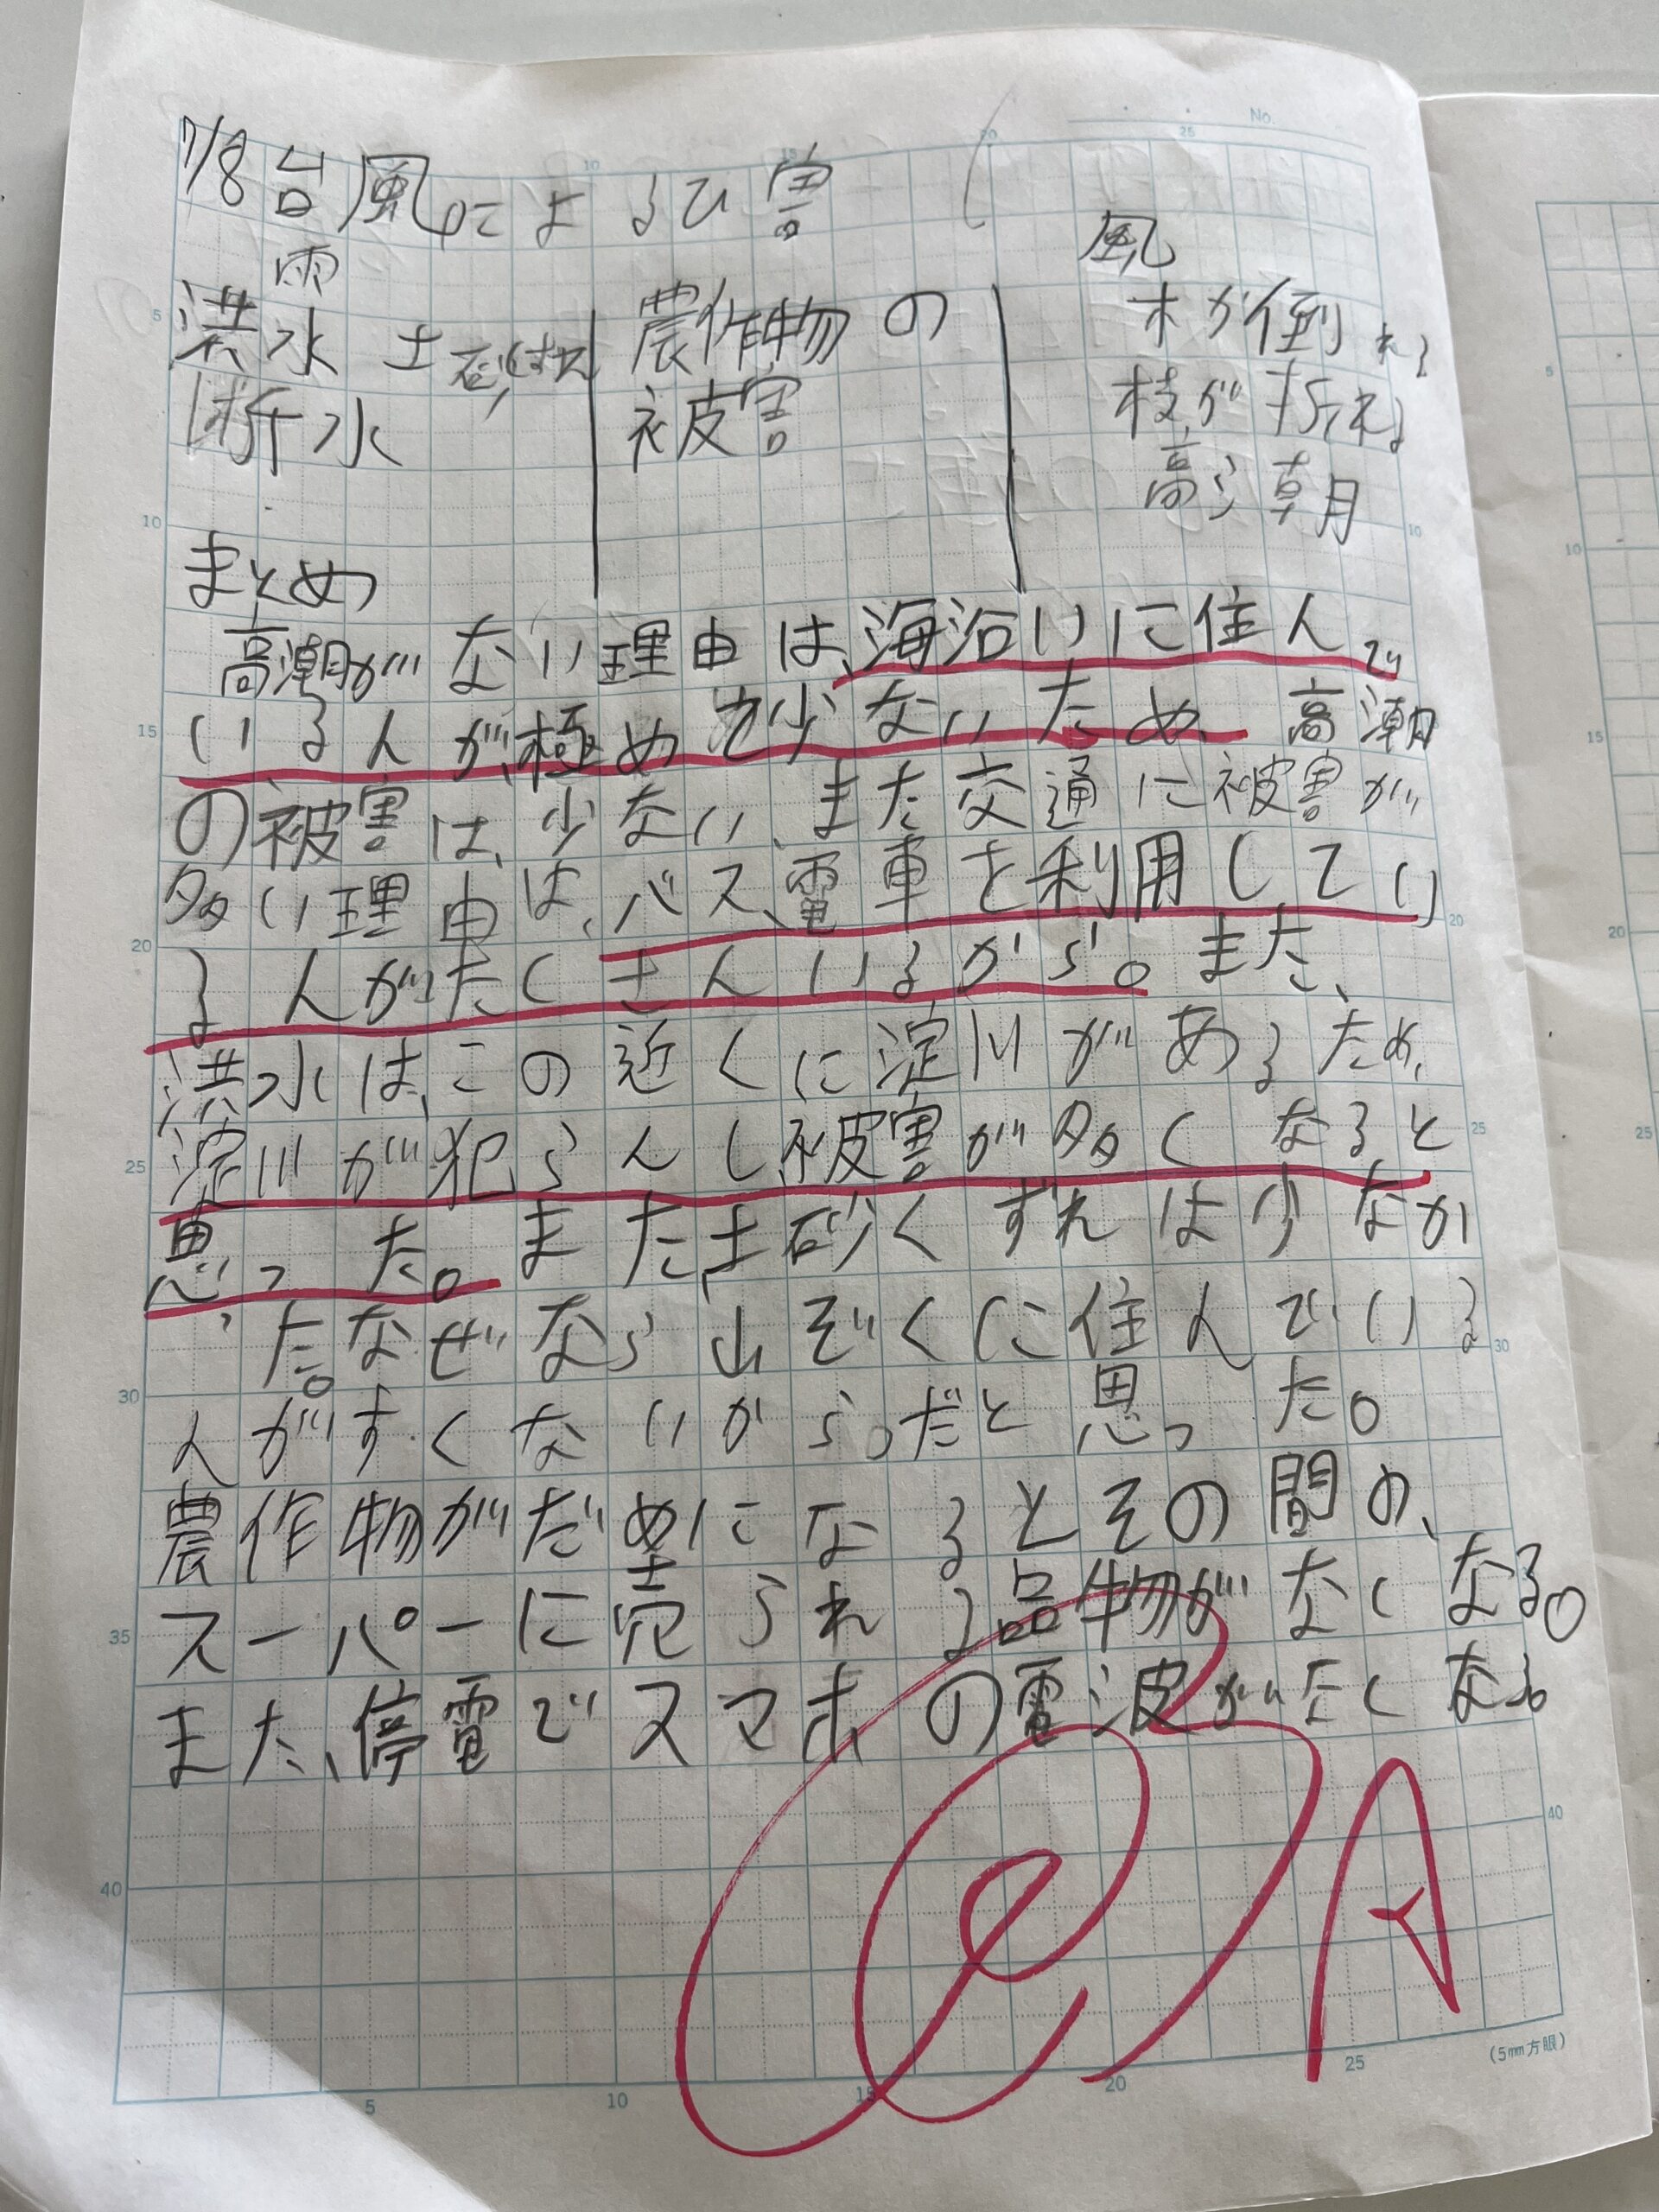 No.
7/8 台風によるひ害
雨
風
洪水 土砂くずれ
断水
農作物の
被害
木が倒れる
枝が折れる
高ら潮
まとめ
高潮がない理由は、海沿いに住んで
いる人が、極めて少ないため、高潮
の被害は、少ない、また交通に被害が
多い理由は、バス、電車を利用してい
る人がたくさんいるから。また、
洪水は、この近くに淀川があるため、
淀川が犯らんし、被害が多くなると
思った。また土砂くずれは少なか
った。なぜなら山ぞくに住んでいる
人がすくないから。だと思った。
農作物がだめになるとその間の、
スーパーに売られる品物がなくなる。
また、停電でスマホの電波がなくなる
A
(5mm方眼)